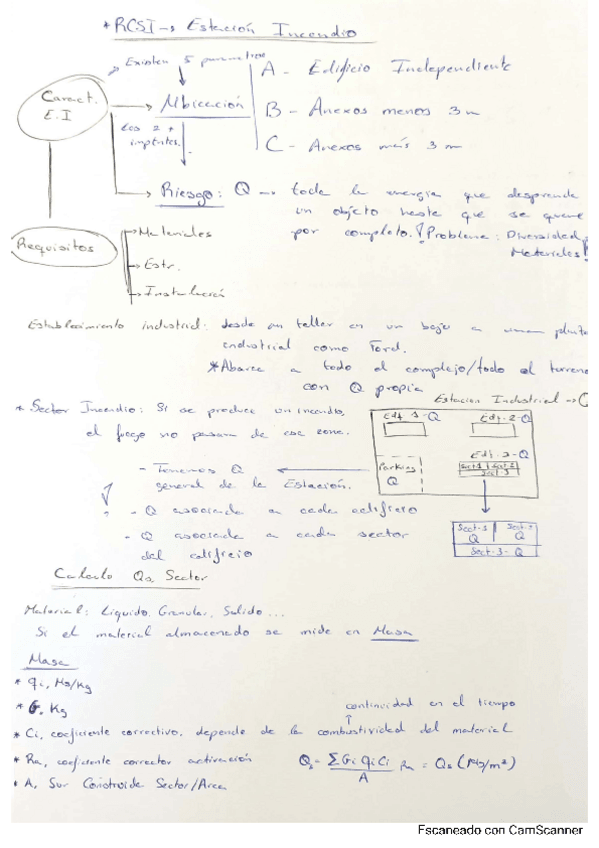 * RCSI → Estación Incendio
Existen 5 parametros
Caract. E.I
Ubicación
A - Edificio Independiente
B - Anexos menos 3 m
C - Anexos más 3 m
Los 2 + imptntes.
Riesgo: Q → toda la energia que desprende
un objeto hasta que se queme
por completo. ¡Problema: Diversidad
Materiales!
Requisitos
→ Materiales
→ Estr.
→ Instalación
Establecimiento industrial: desde un taller en un bajo a una planta
industrial como Ford.
*Abarca a todo el complejo/todo el terreno
con Q propia
Estacion Industrial → Q
* Sector Incendio: Si se produce un incendio,
el fuego no pasara de esa zone.
Edf. 1-Q
Edf. 2-Q
Edf. 3-Q
Sect 1 Sect 2
Sect-3
Parking
Q
- Tenemos Q
general de la Estación.
- Q asociada a cada edificio
- Q asociada a cada sector
del edificio
Sect-1 Q
Sect-2 Q
Sect-3-Q
Calculo Qs, Sector
Material: Liquido, Granular, Solido ...
Si el material almacenado se mide en Masa
Masa
* qi, MJ/kg
* G, Kg
continuidad en el tiempo
* Ci, coeficiente correctivo, depende de la combustividad del material
* Ra, coeficiente corrector activación
Qs = ΣGi qi Ci / A Ra = Qs (MJ/m²)
* A, Sur Construida Sector/Area
Escaneado con CamScanner